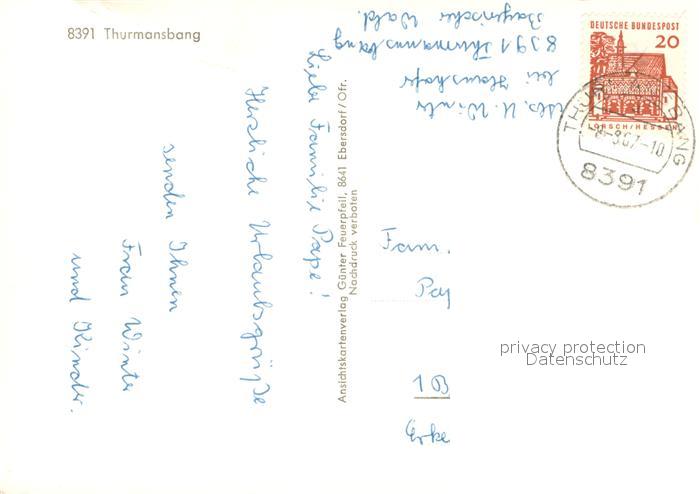 8391 Thurmansbang
Liebe Familie Pape!
Herzliche Urlaubsgrüße
senden Ihnen
Frau Winter
und Kinder.
Ansichtskartenverlag Günter Feuerpfeil, 8641 Ebersdorf/Ofr.
Nachdruck verboten
Abs. U. Winter
bei Hanshofer
8391 Thurmannsbang
Bayerischer Wald.
DEUTSCHE BUNDESPOST
20
LORSCH/HESSEN
8391
Fam.
Pap
1 B
Erke
privacy protection
Datenschutz